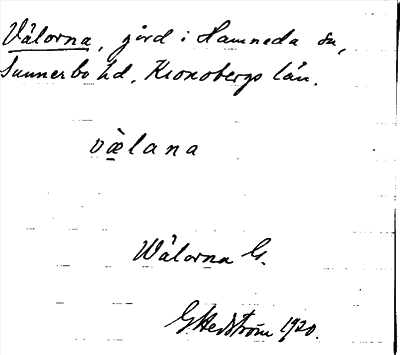 Välorna, gård i Hamneda sn,
Sunnerbo hd, Kronobergs län.
væ̀lana
Wälorna G.
G Hedström 1920.